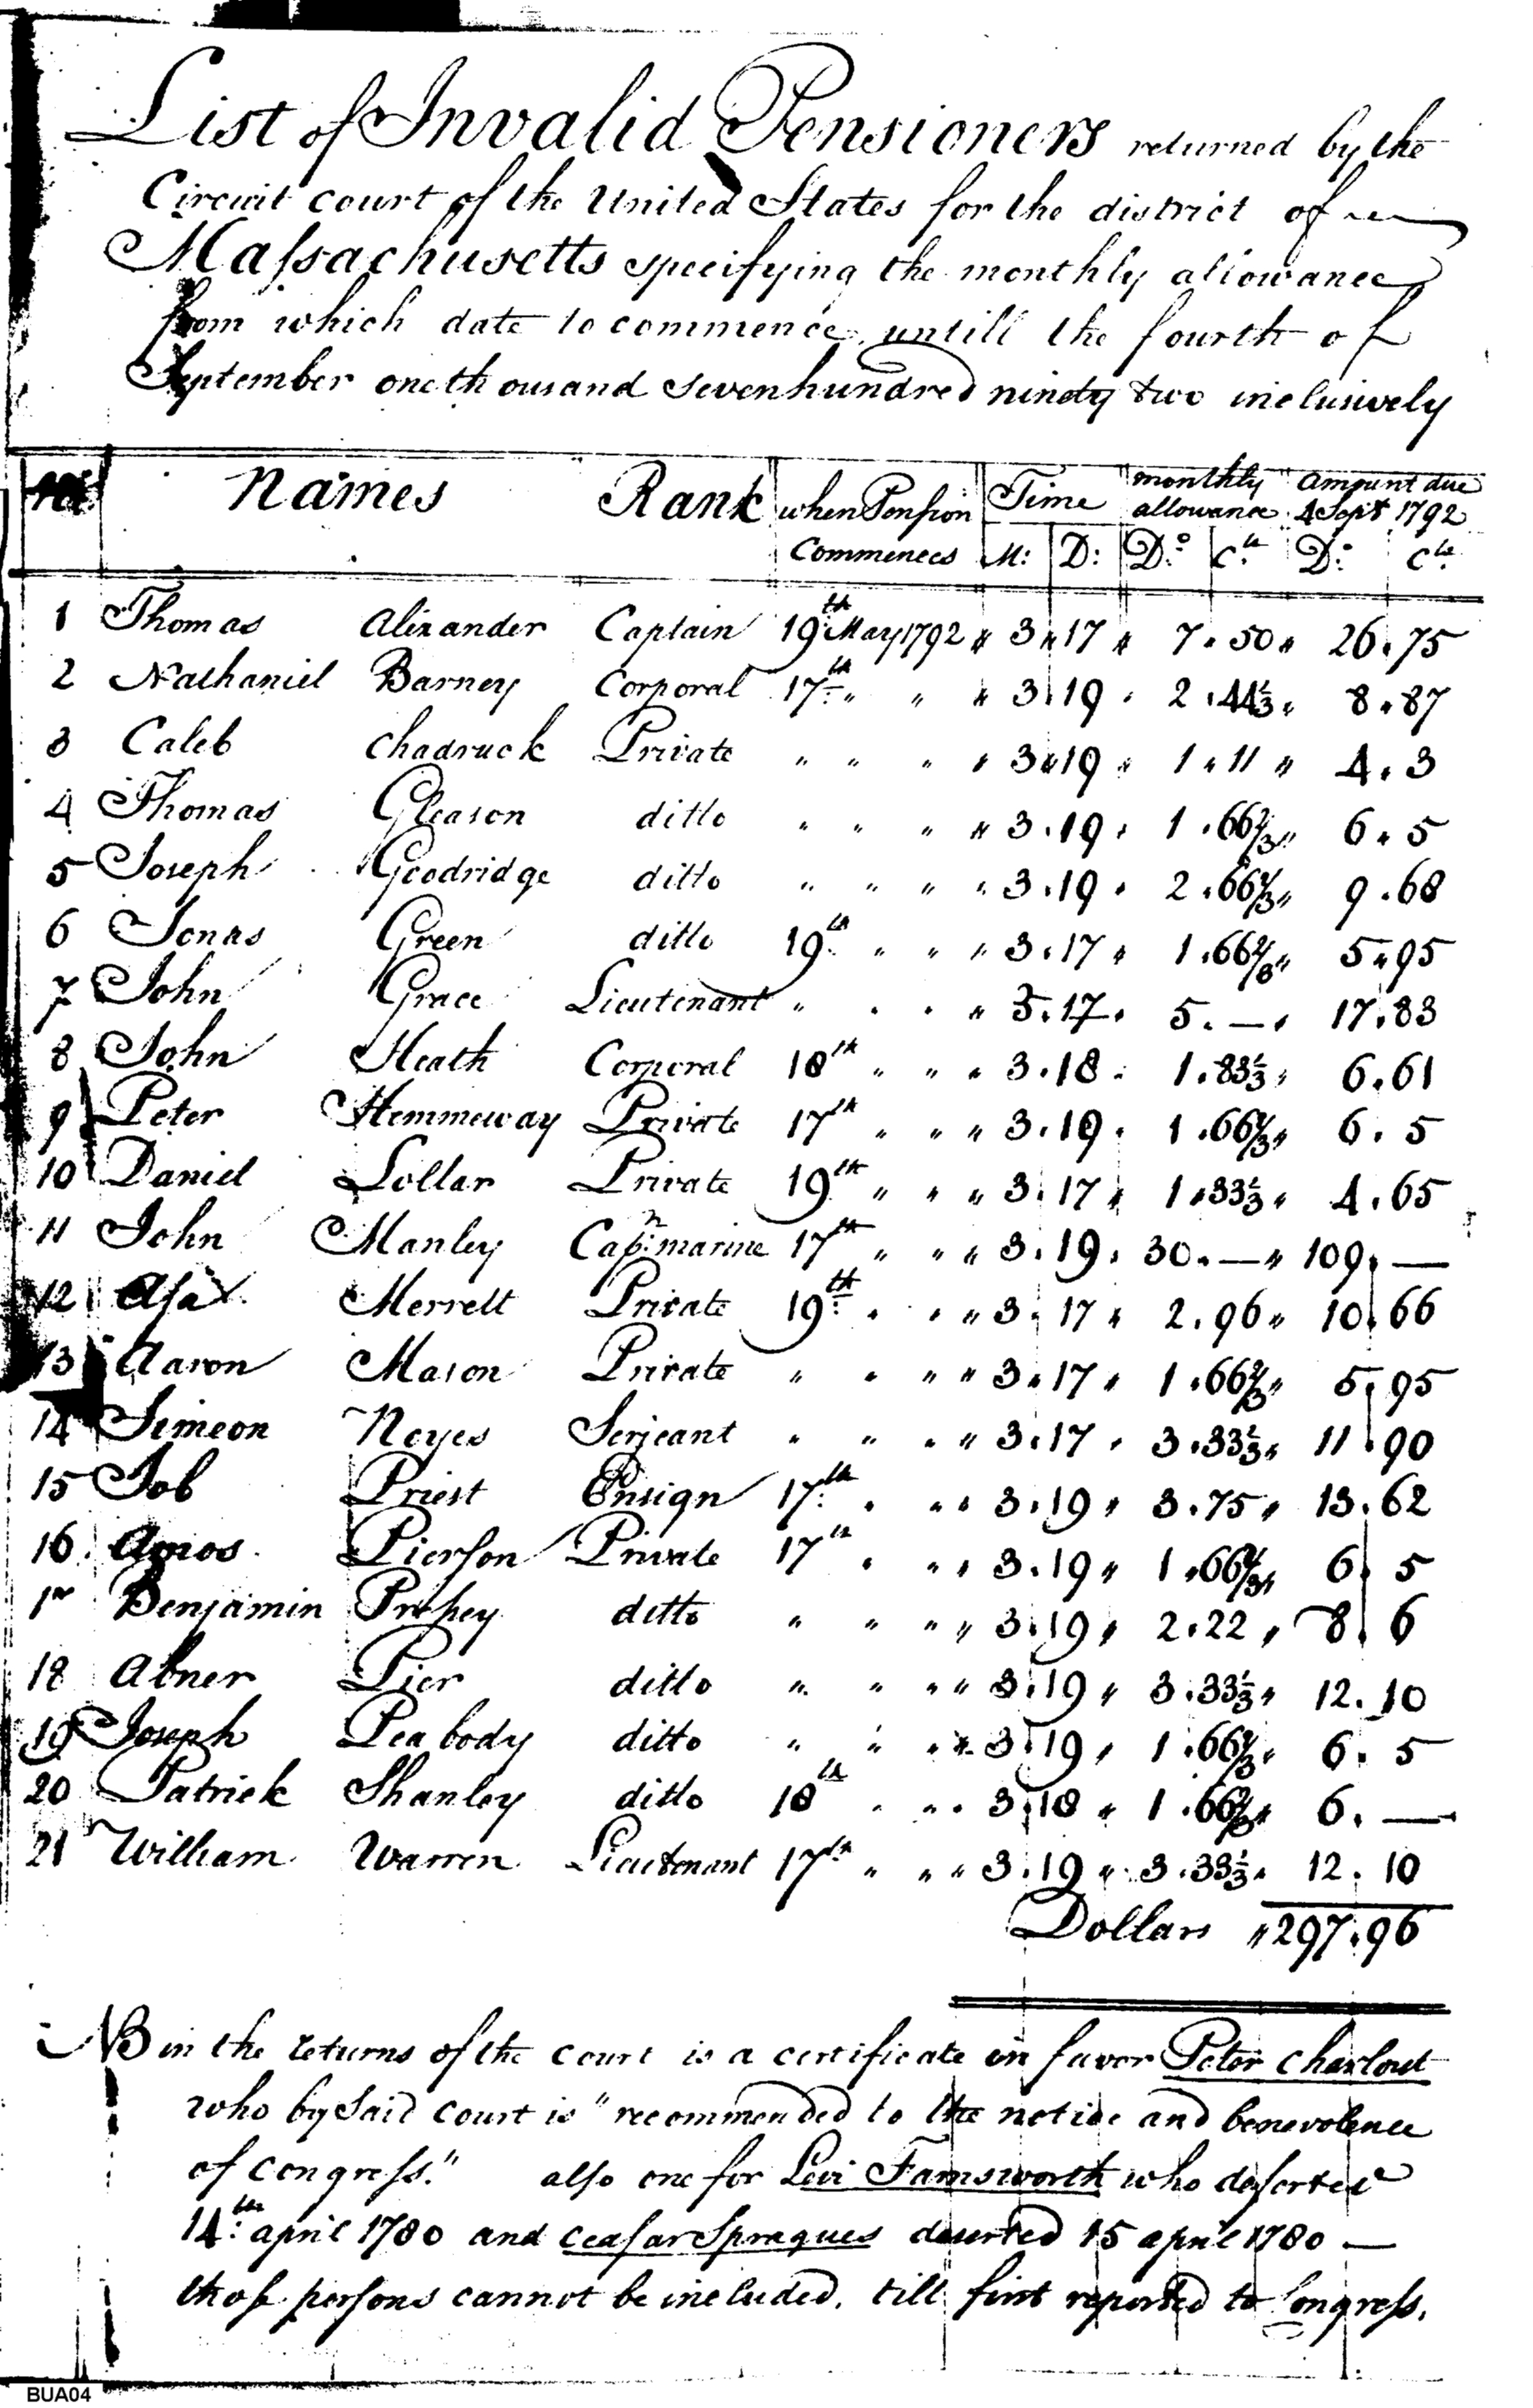 List of Invalid Pensioners returned by the
Circuit court of the United States for the district of
Massachusetts specifying the monthly allowance
from which date to commence untill the fourth of
September one thousand seven hundred ninety two inclusively
No. Names Rank when Pension Time monthly Amount due
allowance 4 Sept 1792
Commences M: D: Do. Cts. Do. Cts.
1 Thomas Alixander Captain 19th May 1792 " 3 " 17 " 7 " 50 " 26 . 75
2 Nathaniel Barney Corporal 17th " " " 3 . 19 . 2 . 44⅓ " 8 . 87
3 Caleb Chadruck Private " " " " 3 " 19 " 1 " 11 " 4 . 3
4 Thomas Gleason ditto " " " " 3 . 19 . 1 . 66⅔ " 6 . 5
5 Joseph Goodridge ditto " " " " 3 . 19 . 2 . 66⅔ " 9 . 68
6 Jonas Green ditto 19th " " " 3 . 17 " 1 . 66⅔ " 5 " 95
7 John Grace Lieutenant " . . " 3 . 17 . 5 . — . 17 . 83
8 John Heath Corporal 18th " " " 3 . 18 . 1 . 83⅓ " 6 . 61
9 Peter Hemmeway Private 17th " " " 3 . 19 . 1 . 66⅔ " 6 . 5
10 Daniel Lollar Private 19th " " " 3 . 17 " 1 " 33⅓ " 4 . 65
11 John Manley Capn. marine 17th " " " 3 . 19 . 30 . — " 109 . —
12 Asa Merrett Private 19th . . " 3 . 17 " 2 . 96 " 10 . 66
13 Aaron Mason Private " . " " 3 " 17 " 1 . 66⅔ " 5 . 95
14 Simeon Noyes Serjeant " " . " 3 . 17 . 3 . 33⅓ " 11 . 90
15 Job Priest Ensign 17th . . " 3 . 19 " 3 . 75 " 13 . 62
16 Amos Pierson Private 17th . . " 3 . 19 " 1 . 66⅔ " 6 . 5
17 Benjamin ditto " " " " 3 . 19 " 2 . 22 " 8 . 6
18 Abner Pier ditto " " " " 3 . 19 " 3 . 33⅓ " 12 . 10
19 Joseph Peabody ditto " " . " 3 . 19 " 1 . 66⅔ " 6 . 5
20 Patrick Shanley ditto 18th . . . 3 . 18 " 1 . 66⅔ " 6 . —
21 William Warren Lieutenant 17th " " " 3 . 19 " 3 . 33⅓ " 12 . 10
Dollars " 297 . 96
NB in the returns of the court is a certificate in favor Peter Charlout
who by said court is "recommended to the notice and benevolence
of congress." also one for Levi Farnsworth who deserted
14th april 1780 and Ceasar Spragues deserted 15 april 1780 —
those persons cannot be included, till first reported to Congress.
BUA04